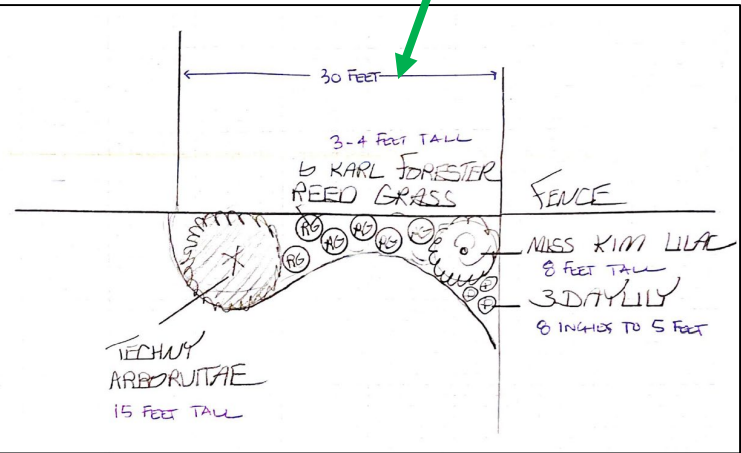 30 FEET
3-4 FEET TALL
6 KARL FORESTER
REED GRASS
FENCE
RG
RG
RG
RG
RG
RG
MISS KIM LILAC
8 FEET TALL
3 DAYLILY
8 INCHES TO 5 FEET
TECHNY
ARBORVITAE
15 FEET TALL